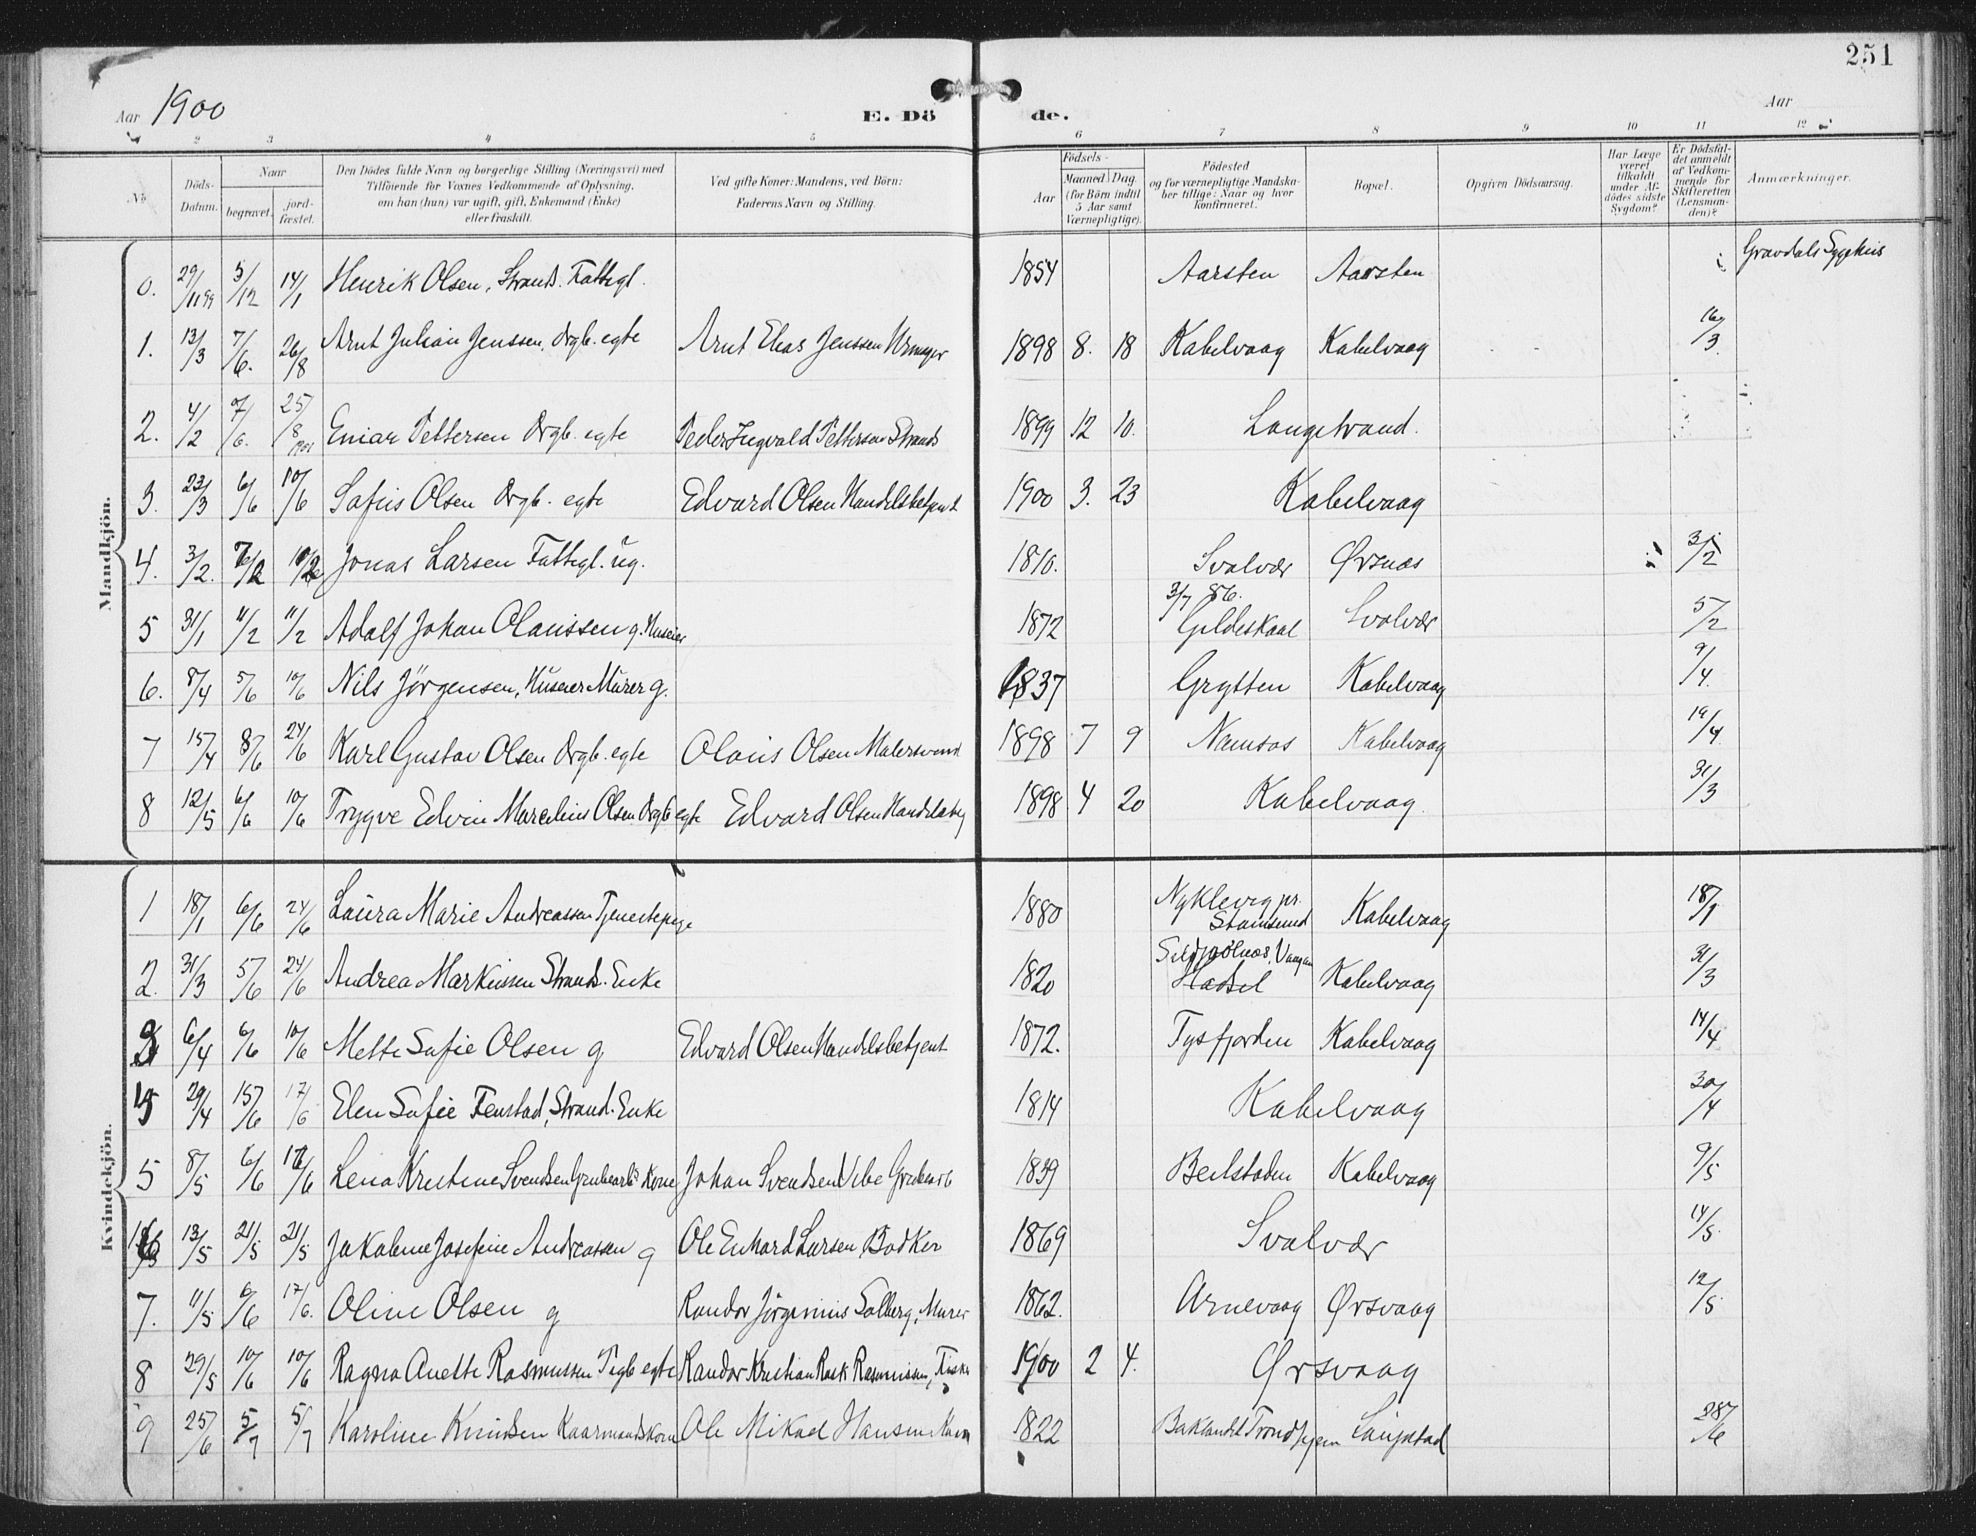 251
Aar 1900
E. Dö de.
Aar
2 3 4 5 6 7 8 9 10 11 12
No.
Döds-Datum.
Naar
begravet.
jordfæstet.
Den Dödes fulde Navn og borgerlige Stilling (Næringsvei) med
Tilföiende for Voxnes Vedkommende af Oplysning,
om han (hun) var ugift, gift, Enkemand (Enke)
eller fraskilt.
Ved gifte Koner: Mandens, ved Börn:
Faderens Navn og Stilling.
Födsels-
Aar
Maaned Dag
(for Börn indtil
5 Aar samt
Værnepligtige).
Födested
og for værnepligtige Mandskaber tillige: Naar og hvor
konfirmeret.
Bopæl.
Opgiven Dödsaarsag.
Har Læge
været
tilkaldt
under Afdödes sidste
Sygdom?
Er Dödsfaldet anmeldt
af Vedkommende for
Skifteretten
(Lensmanden)?
Anmærkninger.
Mandkjön.
0. 29/11 99 5/12 14/1 Henrik Olsen, Strands. Fattigl. 1854 Aarsten Aarsten Gravdals Sygehus
1. 13/3 7/6. 26/8 Arnt Julian Jenssen, Drgb. egte Arnt Elias Jenssen Urmager 1898 8. 18 Kabelvaag Kabelvaag 16/3.
2. 4/2 7/6. 25/8 1901 Einar Pettersen Drgb. egte Peder Ingvald Pettersen Strands 1899 12 10. Langstrand.
3. 23/3 6/6 10/6 Sofus Olsen Drgb. egte Edvard Olsen Handelsbetjent 1900 3. 23 Kabelvaag
4. 3/2. 7/2 10/2 Jonas Larsen Fattigl. ug. 1810. Svolvær Ørsnes 3/2
5 31/1 11/2 11/2 Adolf Johan Olaussen g. Huseier 1872 3/7 86. Gildeskaal Svolvær 5/2
6. 8/4 5/6 10/6 Nils Jörgensen, Huseier Murer g. 1837 Grytten Kabelvaag 9/4.
7 15/4 8/6 24/6 Karl Gustav Olsen Drgb. egte Olaus Olsen Malersvend 1898 7 9 Namsos Kabelvaag 19/4
8 12/5 6/6 10/6 Trygve Edvin Marcelius Olsen Drgb egte Edvard Olsen Handelsbetj 1898 4 20 Kabelvaag. 31/3
Kvindekjön.
1 18/1 6/6 24/6 Laura Marie Andreassen Tjenestepige 1880 Nyklevig pr. Stamsund Kabelvaag 18/1
2. 31/3 5/6 24/6 Andrea Markussen Strands. Enke 1820 Hadsel Kabelvaag 31/3
3 6/4 6/6 10/6 Mette Sofie Olsen g Edvard Olsen Handelsbetjent 1872. Tysfjorden Kabelvaag 14/4
29/4 15/6 17/6 Elen Sofie Fenstad, Strand. Enke 1814 Kabelvaag 30/4
5 8/5 6/6 17/6 Lena Kristine Svendsen Grubearb's Kone Johan Svendsen Vibe Grubearb 1839 Beitstaden Kabelvaag 9/5
6 13/5 21/5 21/5 Jakobine Josefine Andreassen g Ole Enhard Larsen Bødker 1869 Svolvær 14/5.
7. 11/5 6/6 17/6. Oline Olsen g Randor Jörginius Solberg, Murer 1862. Arnevaag Ørsvaag 12/5
8 29/5 10/6 10/6 Ragna Anette Rasmussen Pigb egte Randor Kristian Rask Rasmussen, Fisker 1900 2 4. Ørsvaag
9 25/6 5/7 5/7 Karoline Knudsen Kaarmandskone Ole Mikael Hansen 1822 Baklandet Trondhjem 28/6